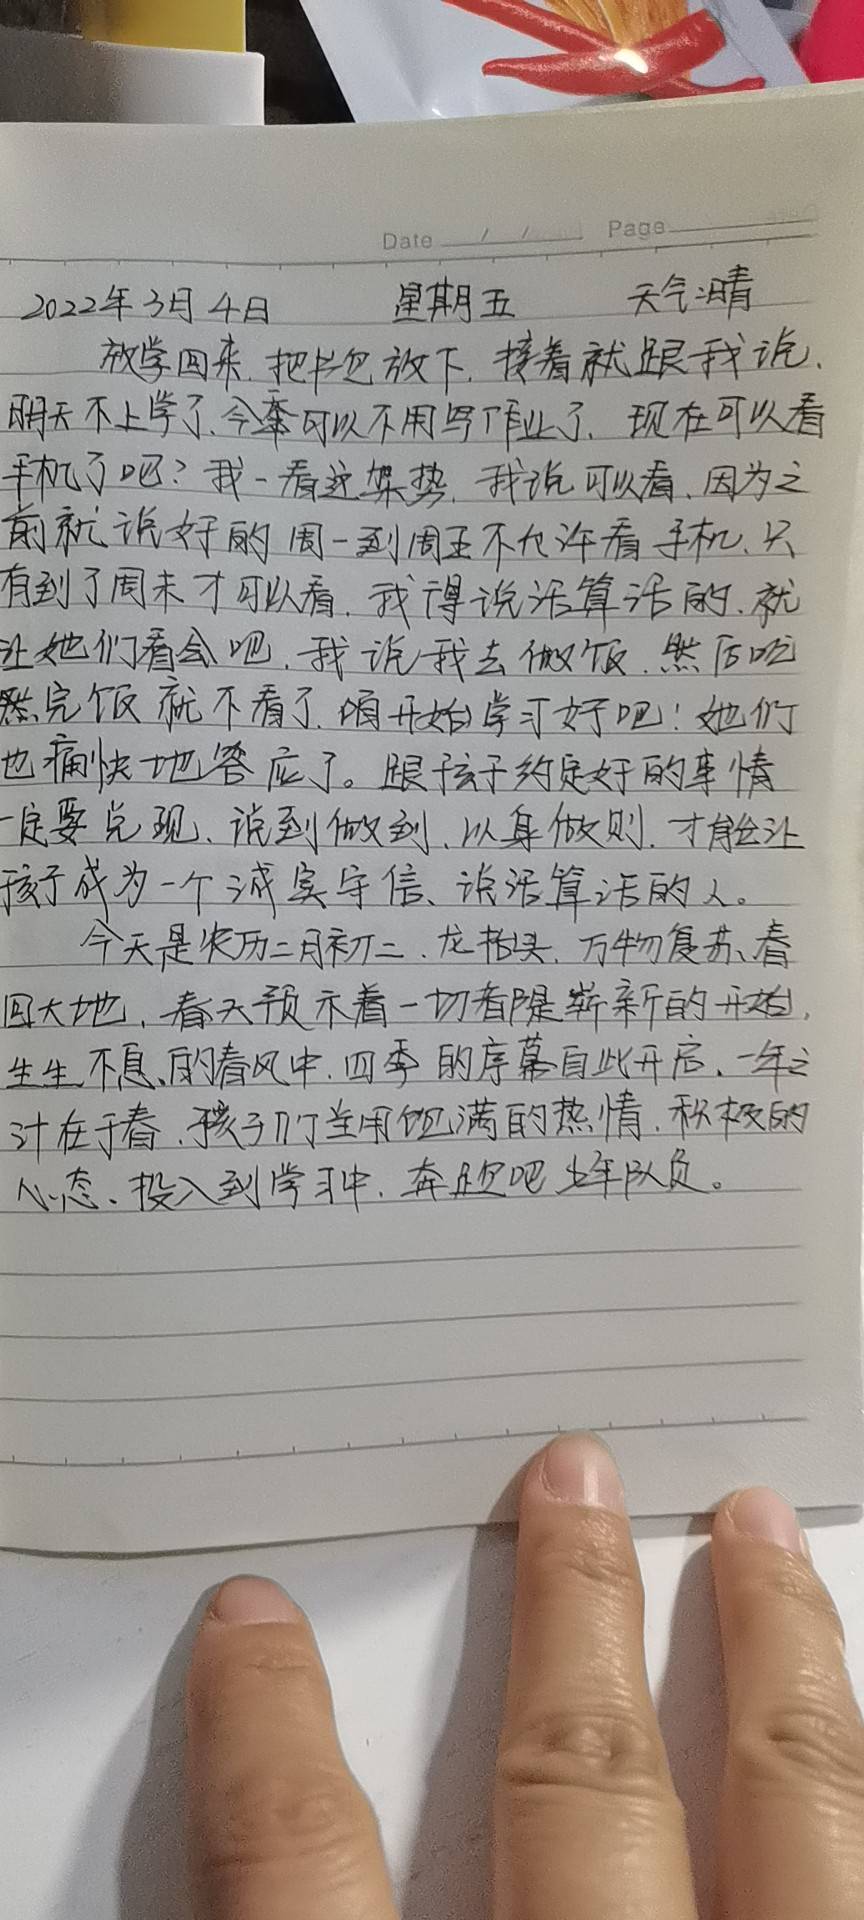 Date / / Page
2022年3月4日 星期五 天气:晴
放学回来,把书包放下,接着就跟我说,
明天不上学了,今可以不用写作业了,现在可以看
手机了吧?我一看这架势,我说可以看,因为之
前就说好的周一到周五不允许看手机,只
有到了周末才可以看,我得说话算话的,就
让她们看会吧,我说我去做饭,然后吃
完饭就不看了,开始学习好吧!她们
也痛快地答应了。跟孩子约定好的事情
一定要兑现、说到做到,以身做则,才能让
孩子成为一个诚实守信、说话算话的人。
今天是农历二月初二,龙抬头,万物复苏、春
回大地,春天预示着一切都是崭新的开始,
生生不息的春风中,四季的序幕自此开启,一年之
计在于春,孩子们当用饱满的热情,积极的
心态、投入到学习中,奔跑吧少年队员。